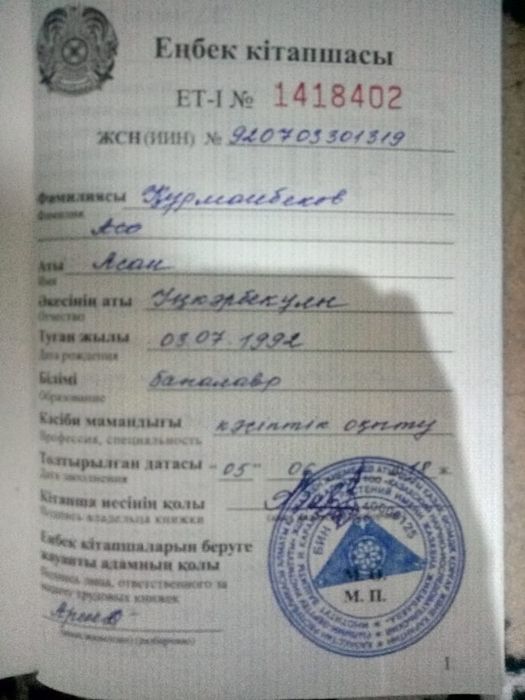 Еңбек кітапшасы
ЕТ-I № 1418402
ЖСН (ИИН) № 920703301319
Фамилиясы Құрманбеков
Фамилия
Асо
Аты Асан
Имя
Әкесінің аты
Отчество
Туған жылы 03.07.1992
Дата рождения
Білімі бакалавр
Образование
Кәсіби мамандығы кәсіптік оқыту
Профессия, специальность
Толтырылған датасы "05" 06 18 ж.
Дата заполнения
Кітапша иесінің қолы
Подпись владельца книжки
Еңбек кітапшаларын беруге
жауапты адамның қолы
Подпись лица, ответственного за
выдачу трудовых книжек
М. О.
М. П.
1